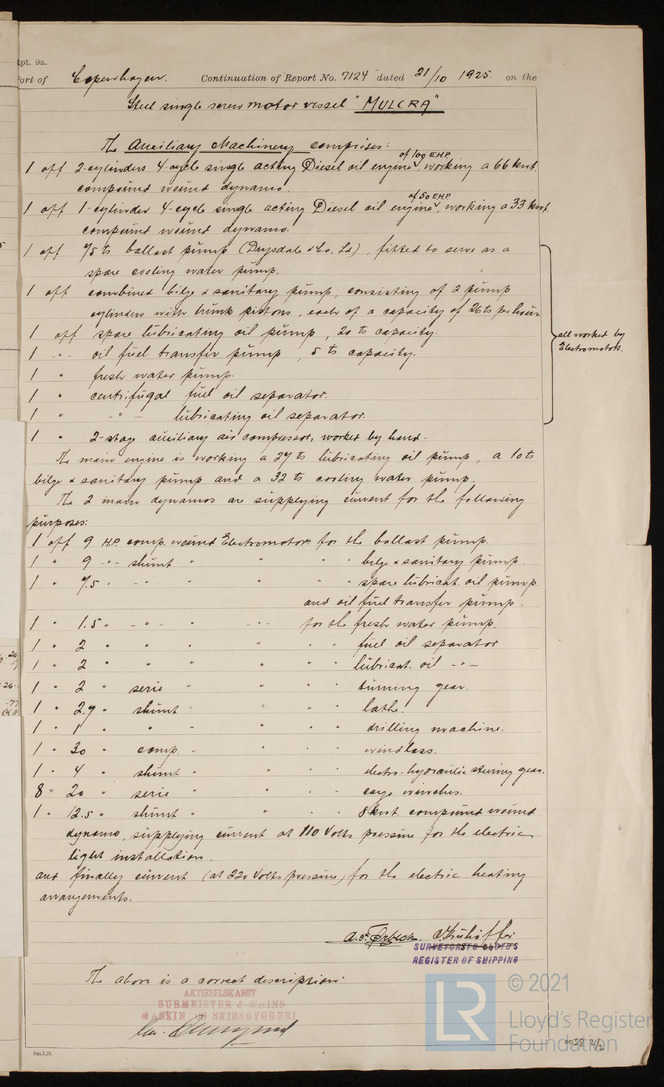 Rpt. 9a.
Port of Copenhagen. Continuation of Report No. 7124 dated 21/10 1925 on the
Steel single screw motor vessel "MULCRA"
The Auxiliary Machinery comprises:
of 100 EHP
1 off 2-cylinders 4 cycle single acting Diesel oil engine, working a 66 kwt.
compound wound dynamo.
of 50 EHP
1 off 1-cylinder 4-cycle single acting Diesel oil engine, working a 33 kwt.
compound wound dynamo.
1 off 75 ts ballast pump (Drysdale & Co. Ld), fitted to serve as a
spare cooling water pump.
1 off combined bilge & sanitary pump, consisting of 2 pump
cylinders with trunk pistons, each of a capacity of 26 ts per hour
1 off spare lubricating oil pump, 20 ts capacity.
1 " " oil fuel transfer pump, 5 ts capacity.
all worked by
Electromotors.
1 " fresh water pump.
1 " centrifugal fuel oil separator.
1 " " lubricating oil separator.
1 " 2-stage auxiliary air compressor, worked by hand.
The main engine is working a 27 ts lubricating oil pump, a 10 ts
bilge & sanitary pump and a 32 ts cooling water pump.
The 2 main dynamos are supplying current for the following
purposes:
1 off 9 H.P. comp. wound Electromotor for the ballast pump.
1 " 9 " " shunt " " " " bilge & sanitary pump.
1 " 7.5 " " " " " " spare lubricat. oil pump
and oil fuel transfer pump.
1 " 1.5 " " " " for the fresh water pump.
1 " 2 " " " " " " fuel oil separator
1 " 2 " " " " " " lubricat. oil " "
1 " 2 " serie " " " " turning gear.
1 " 2.7 " shunt " " " " lathe.
1 " 1 " " " " " " drilling machine.
1 " 30 " comp. " " " " windlass.
1 " 4 " shunt " " " " electro-hydraulic stering gear.
8 " 20 " serie " " " " cargo winches.
1 " 12.5 " shunt " " " " 8 kwt. compound wound
dynamo, supplying current at 110 Volts pressure for the electric
light installation.
and finally current (at 220 Volts pressure) for the electric heating
arrangements.
SURVEYORS TO LLOYD'S
REGISTER OF SHIPPING
The above is a correct description:
AKTIESELSKABET
BURMEISTER & WAINS
MASKIN OG SKIBSBYGGERI
LR © 2021
Lloyd's Register
Foundation